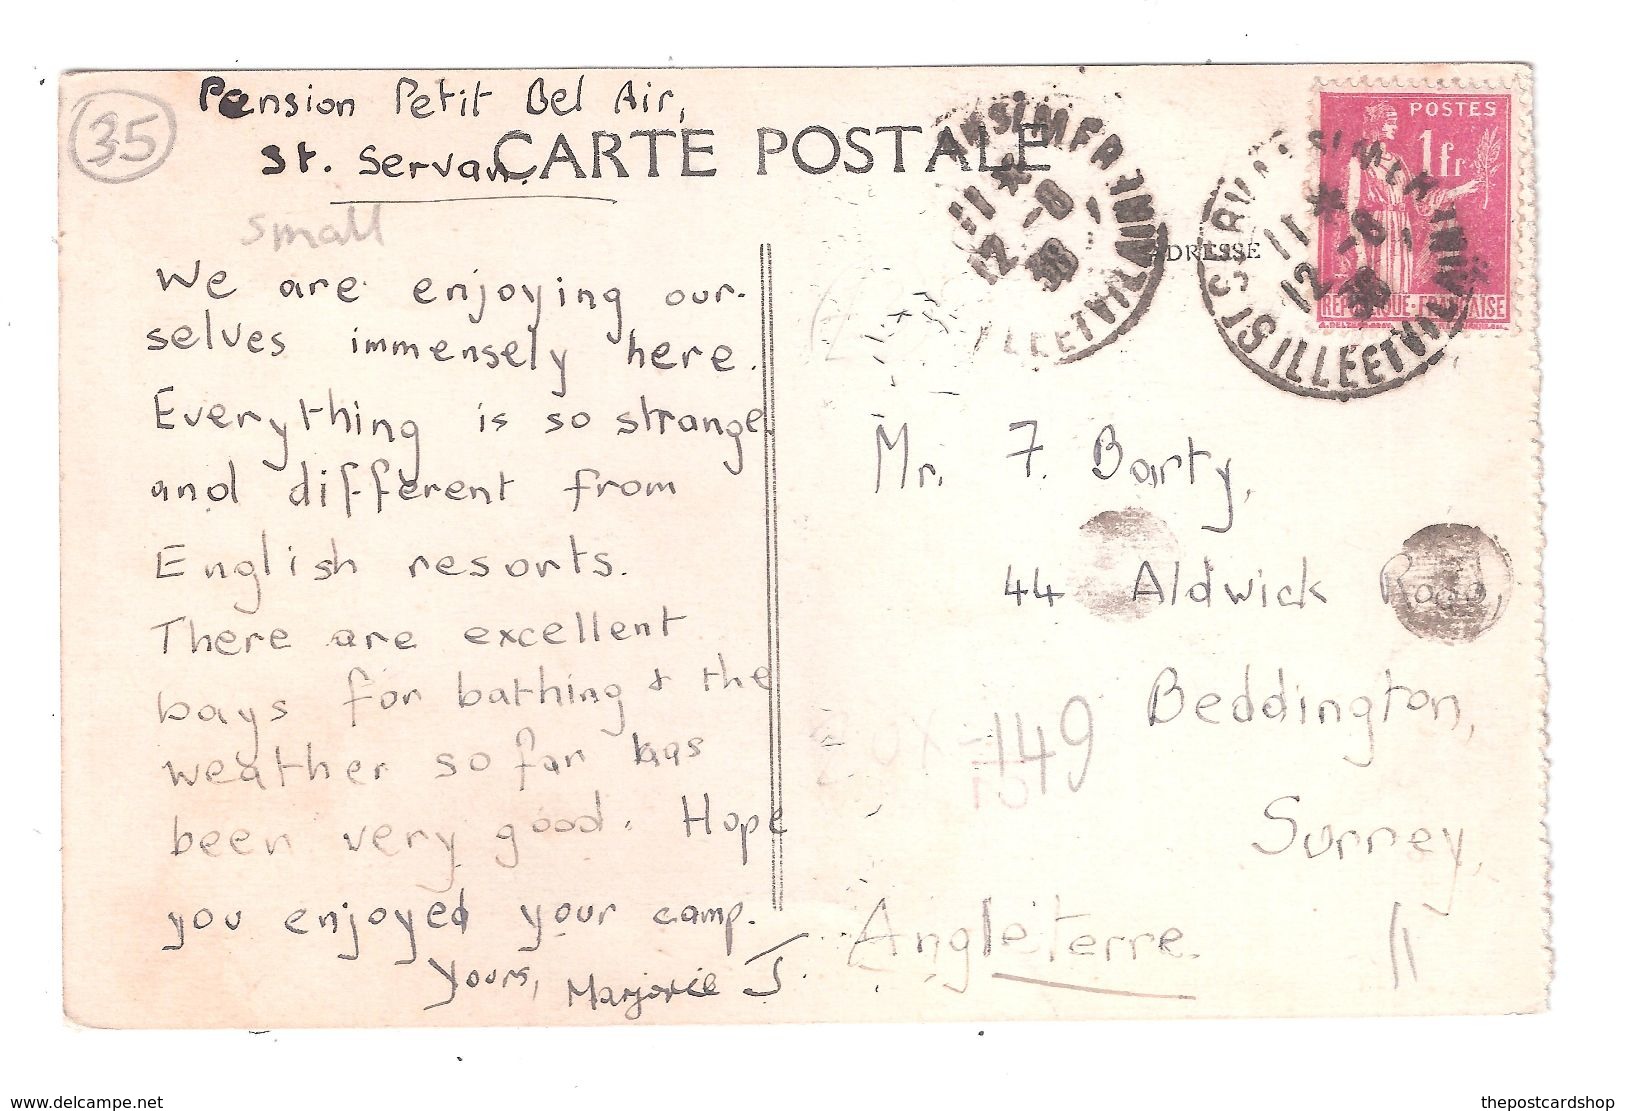 Pension Petit Bel Air,
St. Servan.
35
CARTE POSTALE
small
ADRESSE
POSTES
1fr
REPUBLIQUE-FRANÇAISE
11 *
12 -8
36
ILLE ET VILAINE
11 *
12 -8
36
ILLE ET VILAINE
We are enjoying our-
selves immensely here.
Everything is so strange
and different from
English resorts.
There are excellent
bays for bathing & the
weather so far has
been very good. Hope
you enjoyed your camp.
Yours, Marjorie J.
Mr. F. Barty,
44 Aldwick Road,
Beddington,
Surrey,
Angleterre.
149
www.delcampe.net
thepostcardshop